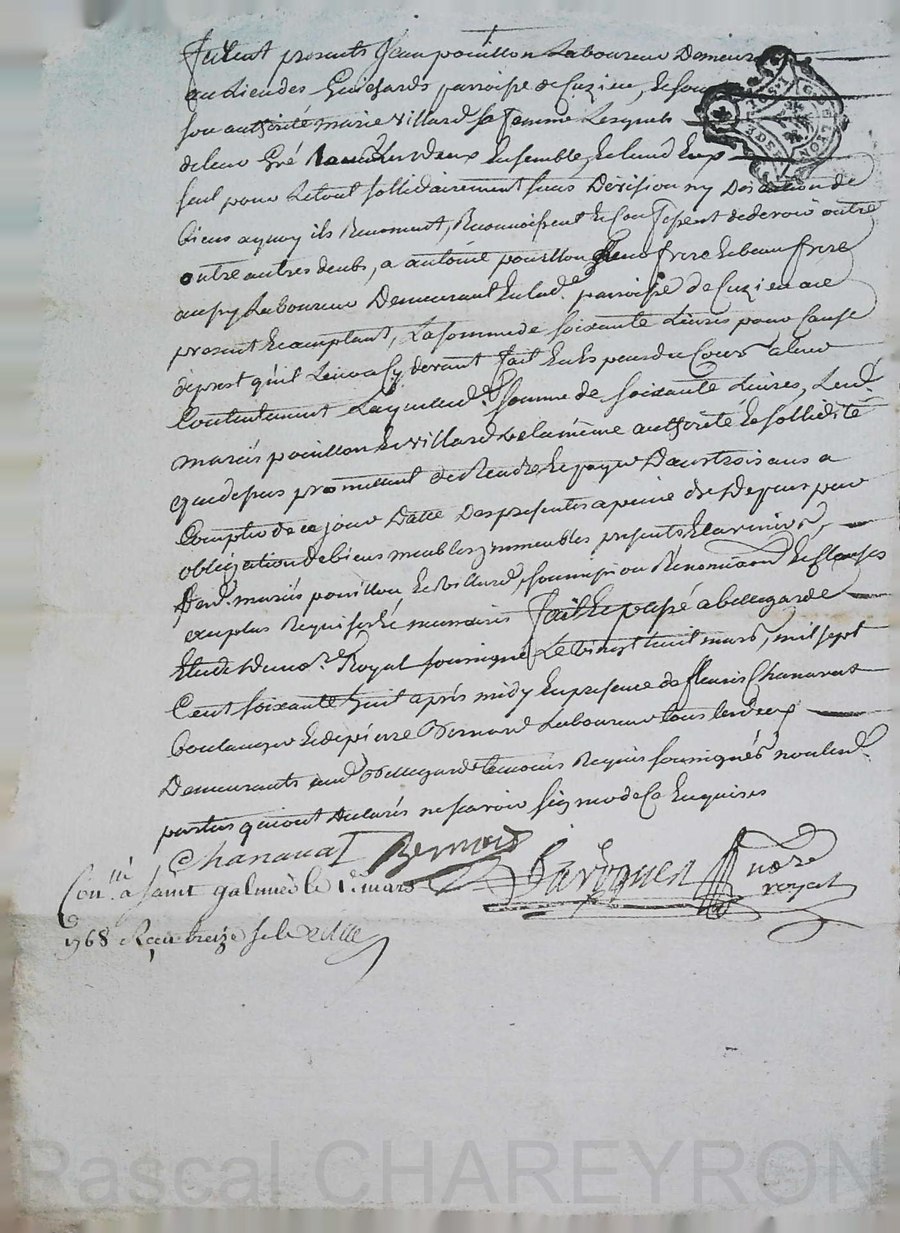 furent presents Jean poüillon Laboureur Demeur
au Lieu des Guichards parroisse de Cuzieu, Et sou
son authorité marie villard sa femme Lesquels
de leur Gré tous Les deux Ensemble, Et lund Eux
seul pour Letout sollidairement sans Division ny Discution de
biens aquoy ils Renoncent, Reconnoissent Et Confessent de devoir outre
outre autres deubs, a antoine poüillon leur frere Et beau frere
aussy Laboureur Demeurant En lad.e parroisse de Cuzieu ace
present Et acceptant, La somme de soixante Livres pour Cause
de prest qu'il Leur a Cy devant fait En Espeses du Cours a leur
Contentement Laquelle d.e somme de soixante Livres, Lesd.
mariés poüillon Et villard de la même authorité Et sollidité
que dessus promettent de Rendre Et payer Dans trois ans a
Compter de ce jour Datte Des presentes a peine de Depens pour
obligation de biens meubles jmmeubles presents Et avenir
desd. mariés poüillon Et villard, soumission Rénonciaon Et Clauses
au plus Requises Et necessaires fait Et passé a bellegarde
Etude du no.re Royal soussigné Le vingt huit mars, mil sept
Cent soixante huit après midy En presence de fleuris Chanavat
boulanger Et de pierre Bernard Laboureur tous Les deux
Demeurants aud Bellegarde temoins Requis soussignés non Lesd.
parties qui ont declarés ne scavoir signer de Ce Enquises
Chanavat Bernard
no.re royal
Con.lé a saint galmier le 1.r mars
1768 Reçu treize sols